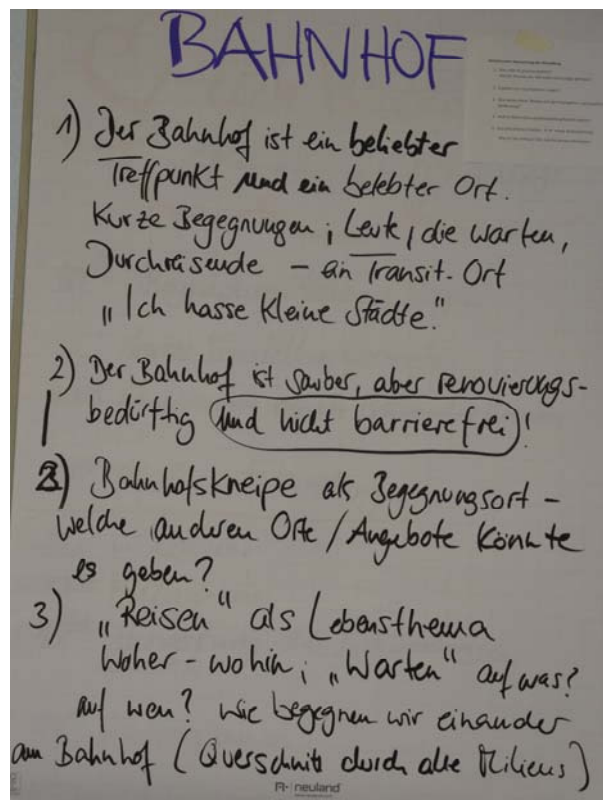 BAHNHOF
1) Der Bahnhof ist ein beliebter
Treffpunkt und ein belebter Ort.
Kurze Begegnungen; Leute, die warten,
Durchreisende – ein Transit-Ort
„Ich hasse kleine Städte."
2) Der Bahnhof ist sauber, aber renovierungs-
bedürftig (und nicht barrierefrei)!
2) Bahnhofskneipe als Begegnungsort –
welche anderen Orte / Angebote könnte
es geben?
3) „Reisen" als Lebensthema
Woher – wohin; „Warten" auf was?
auf wen? Wie begegnen wir einander
am Bahnhof (Querschnitt durch alle Milieus)
neuland